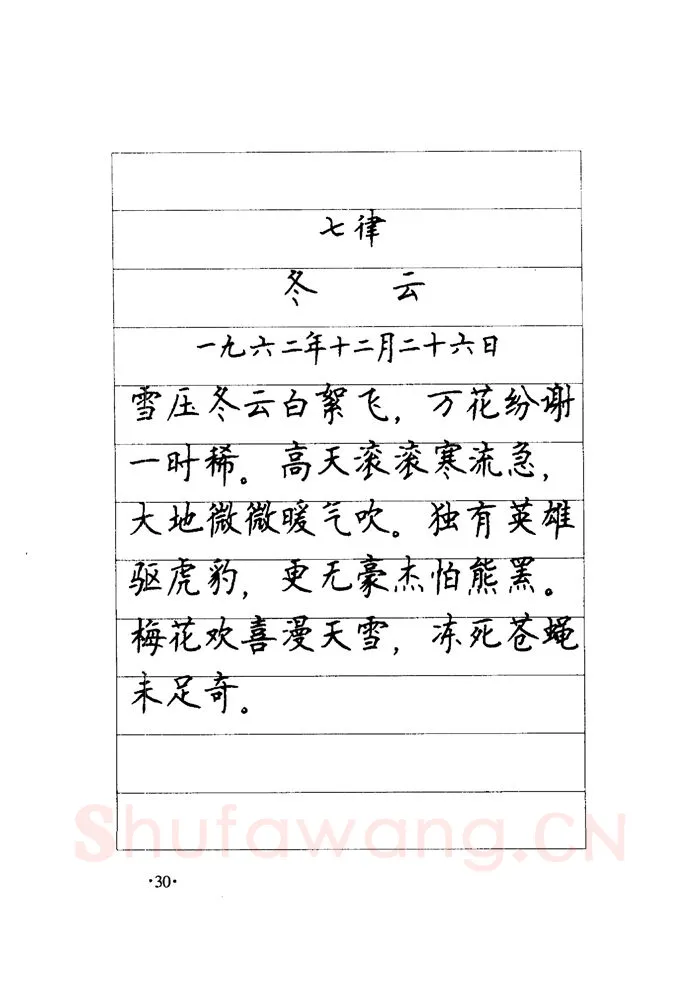 七律
冬 云
一九六二年十二月二十六日
雪压冬云白絮飞，万花纷谢
一时稀。高天滚滚寒流急，
大地微微暖气吹。独有英雄
驱虎豹，更无豪杰怕熊罴。
梅花欢喜漫天雪，冻死苍蝇
未足奇。
Shufawang.CN
·30·